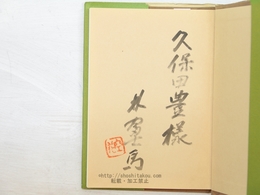 久保田豊様
林富馬
http://shoshi-takou.com/
転載・加工禁止